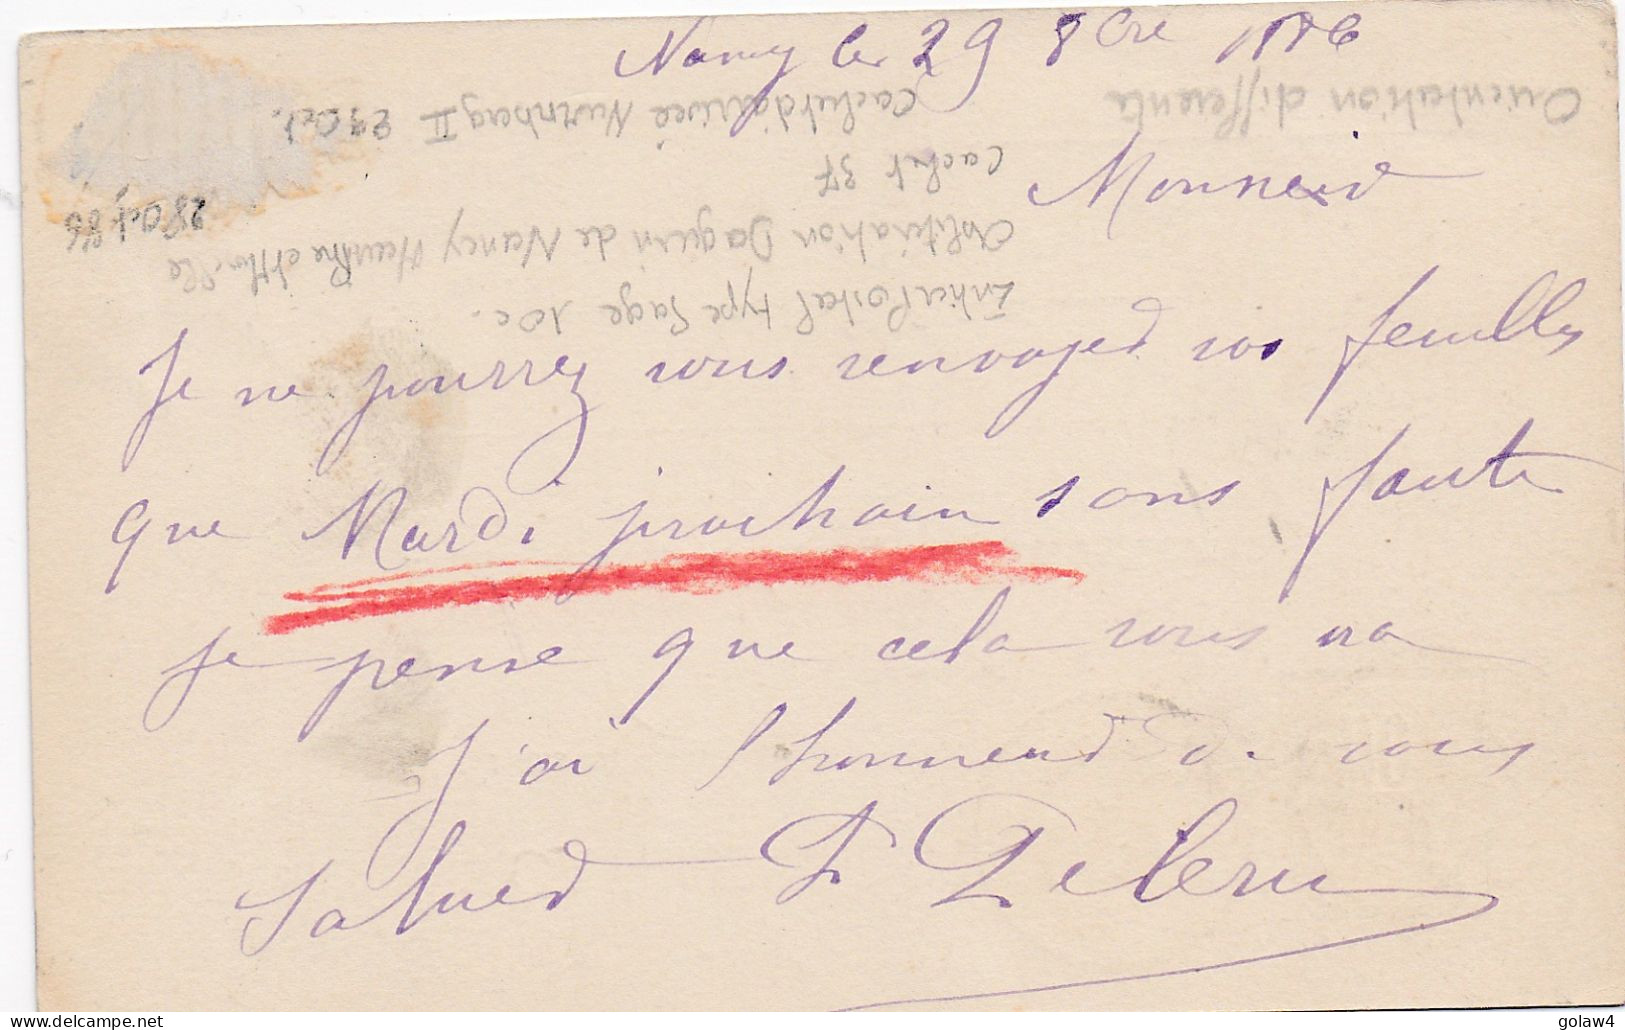 Nancy le 29 8bre 1886
Monsieur
Je ne pourrez vous renvoyer vos feuilles
que Mardi prochain sans faute
je pense que cela vous va
J'ai l'honneur de vous
saluer F
Entier Postal type Sage 10c.
Oblitération Daguin de Nancy Meurthe et
Cachet 37
Cachet d'arrivée Nurnberg II 29 Oct.
Orientation différente
28 Oct 86
golaw4